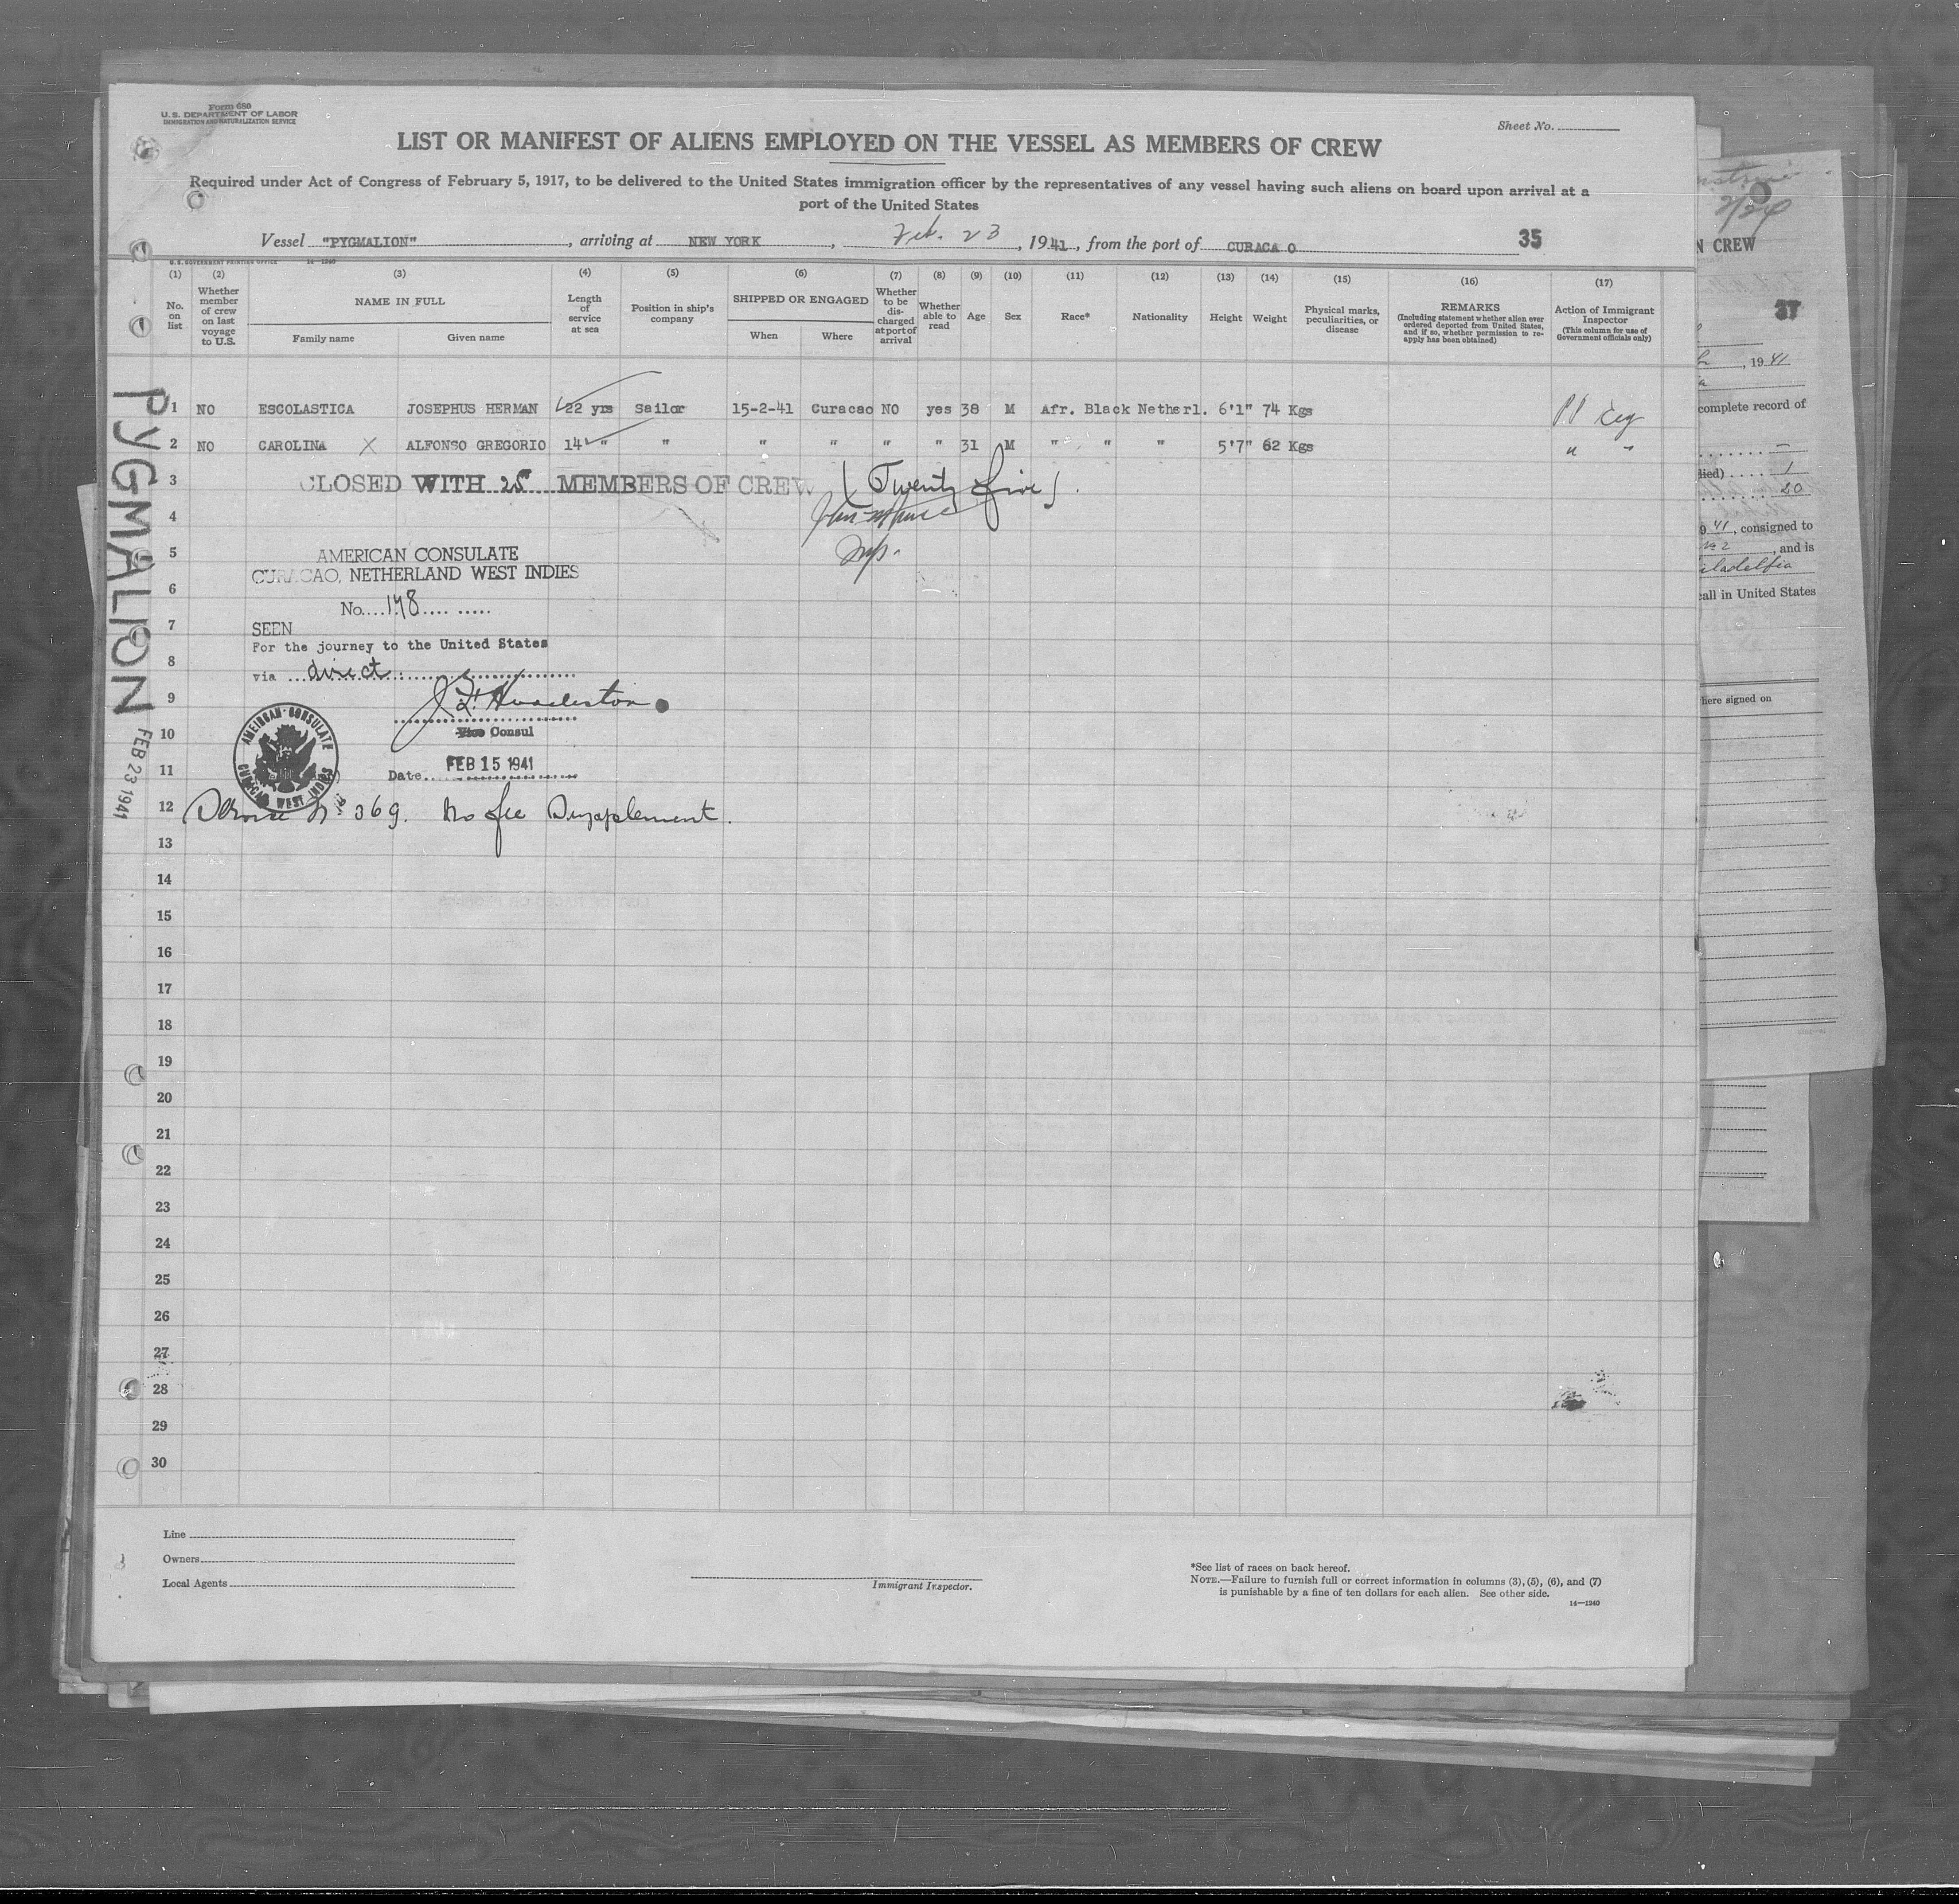 Form 680
U. S. DEPARTMENT OF LABOR
IMMIGRATION AND NATURALIZATION SERVICE
Sheet No.
LIST OR MANIFEST OF ALIENS EMPLOYED ON THE VESSEL AS MEMBERS OF CREW
Required under Act of Congress of February 5, 1917, to be delivered to the United States immigration officer by the representatives of any vessel having such aliens on board upon arrival at a
port of the United States
Vessel "PYGMALION", arriving at NEW YORK, Feb. 23, 1941, from the port of CURACA O 35
U. S. GOVERNMENT PRINTING OFFICE 14—1240
(1) (2) (3) (4) (5) (6) (7) (8) (9) (10) (11) (12) (13) (14) (15) (16) (17)
No. on list
Whether member of crew on last voyage to U.S.
NAME IN FULL
Family name
Given name
Length of service at sea
Position in ship's company
SHIPPED OR ENGAGED
When
Where
Whether to be discharged at port of arrival
Whether able to read
Age
Sex
Race*
Nationality
Height
Weight
Physical marks, peculiarities, or disease
REMARKS
(Including statement whether alien ever ordered deported from United States, and if so, whether permission to reapply has been obtained)
Action of Immigrant Inspector
(This column for use of Government officials only)
1 NO ESCOLASTICA JOSEPHUS HERMAN 22 yrs Sailor 15-2-41 Curacao NO yes 38 M Afr. Black Netherl. 6'1" 74 Kgs
2 NO CAROLINA X ALFONSO GREGORIO 14 " " " " " " 31 M " " " 5'7" 62 Kgs " "
3 CLOSED WITH 25 MEMBERS OF CREW (Twenty five).
4
5
AMERICAN CONSULATE
CURACAO, NETHERLAND WEST INDIES
6
No. 178
7
SEEN
For the journey to the United States
8
via direct
9
10
Vice Consul
11
Date FEB 15 1941
AMERICAN CONSULATE
CURACAO WEST INDIES
12 No 369. No fee
13
14
15
16
17
18
19
20
21
22
23
24
25
26
27
28
29
30
PYGMALION FEB 23 1941
Line
Owners
Local Agents
Immigrant Inspector.
*See list of races on back hereof.
NOTE.—Failure to furnish full or correct information in columns (3), (5), (6), and (7)
is punishable by a fine of ten dollars for each alien. See other side.
14—1240
2/24
N CREW
37
, 1941
complete record of
lied) 1
20
41, consigned to
, and is
iladelfia
call in United States
here signed on